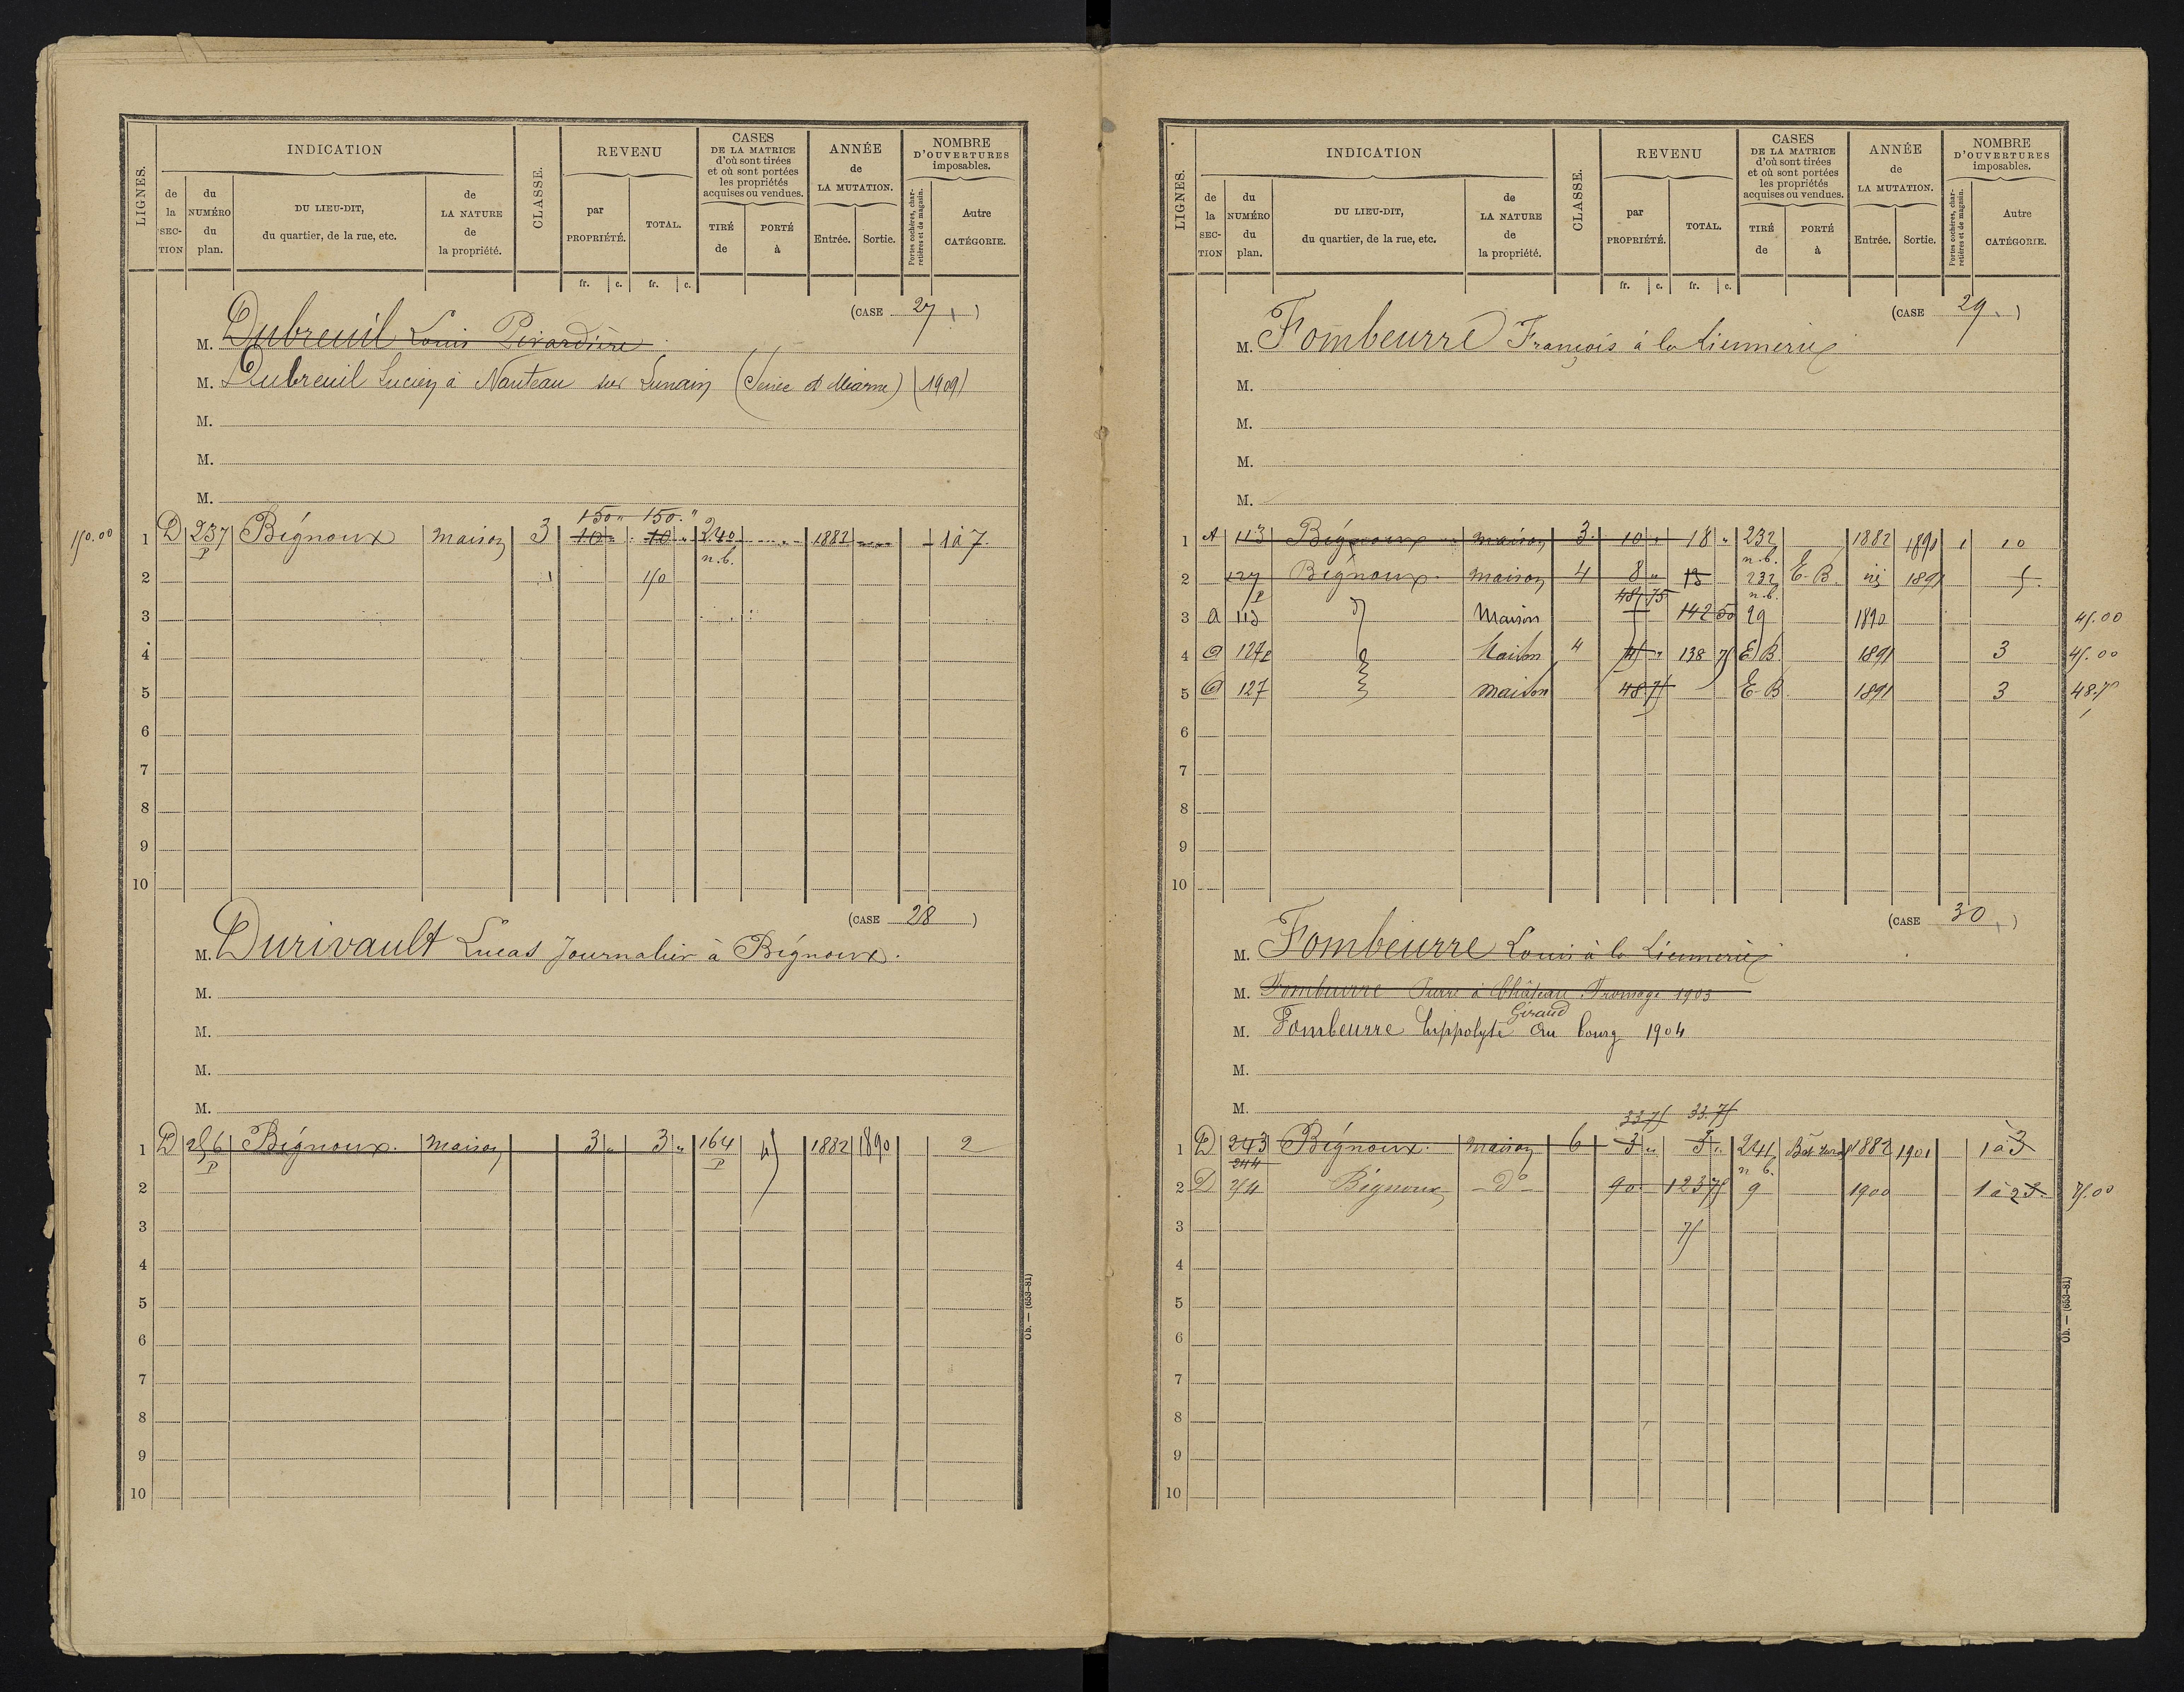 LIGNES.
INDICATION
de la SECTION
du NUMÉRO du plan.
DU LIEU-DIT, du quartier, de la rue, etc.
de LA NATURE de la propriété.
CLASSE.
REVENU
par PROPRIÉTÉ.
TOTAL.
fr. c. fr. c.
CASES DE LA MATRICE d'où sont tirées et où sont portées les propriétés acquises ou vendues.
TIRÉ de
PORTÉ à
ANNÉE de LA MUTATION.
Entrée. Sortie.
NOMBRE D'OUVERTURES imposables.
Portes cochères, charretières et de magasin.
Autre CATÉGORIE.
(CASE 27)
M. Dubreuil Louis Pivardière
M. Dubreuil Lucien à Nanteau sur Lunain (Seine et Marne) (1909)
M.
M.
M.
150 " 150 "
150.00 1 D 237 Bignoux maison 3 10 " 10 " 240 1882 1 à 7
P n.b.
2 150
3
4
5
6
7
8
9
10
(CASE 28)
M. Durivault Lucas Journalier à Bignoux.
M.
M.
M.
M.
1 D 256 Bignoux. maison 3 " 3 " 164 1882 1890 2
P P
2
3
4
5
6
7
8
9
10
Ob. — (653-81)
LIGNES.
INDICATION
de la SECTION
du NUMÉRO du plan.
DU LIEU-DIT, du quartier, de la rue, etc.
de LA NATURE de la propriété.
CLASSE.
REVENU
par PROPRIÉTÉ.
TOTAL.
fr. c. fr. c.
CASES DE LA MATRICE d'où sont tirées et où sont portées les propriétés acquises ou vendues.
TIRÉ de
PORTÉ à
ANNÉE de LA MUTATION.
Entrée. Sortie.
NOMBRE D'OUVERTURES imposables.
Portes cochères, charretières et de magasin.
Autre CATÉGORIE.
(CASE 29.)
M. Fombeurre François à la Liennerie
M.
M.
M.
M.
1 A 113 Bignoux maison 3 10 " 18 " 232 1882 1890 1 10
n.b.
2 127 Bignoux. maison 4 8 " 13 232 E.B. id 1891 5.
P 48 75 n.b.
3 A 113 Maison 142 50 29 1890 45.00
4 127 P Maison 4 45 " 138 75 E.B. 1891 3 45.00
5 127 maison 48 75 E.B 1891 3 48.75
6
7
8
9
10
(CASE 30)
M. Fombeurre Louis à la Liennerie
M. Fombeurre Pierre à Château Fromage 1903
Giraud
M. Fombeurre hippolyte au bourg 1904
M.
M.
33.75 33.75
1 D 243 Bignoux. maison 6 3 " 3 " 241 1882 1901 1 à 3
244 n b.
2 D 254 Bignoux do 90 123 75 9 1900 1 à 2 3 75.00
3 75
4
5
6
7
8
9
10
Ob. — (653-81)